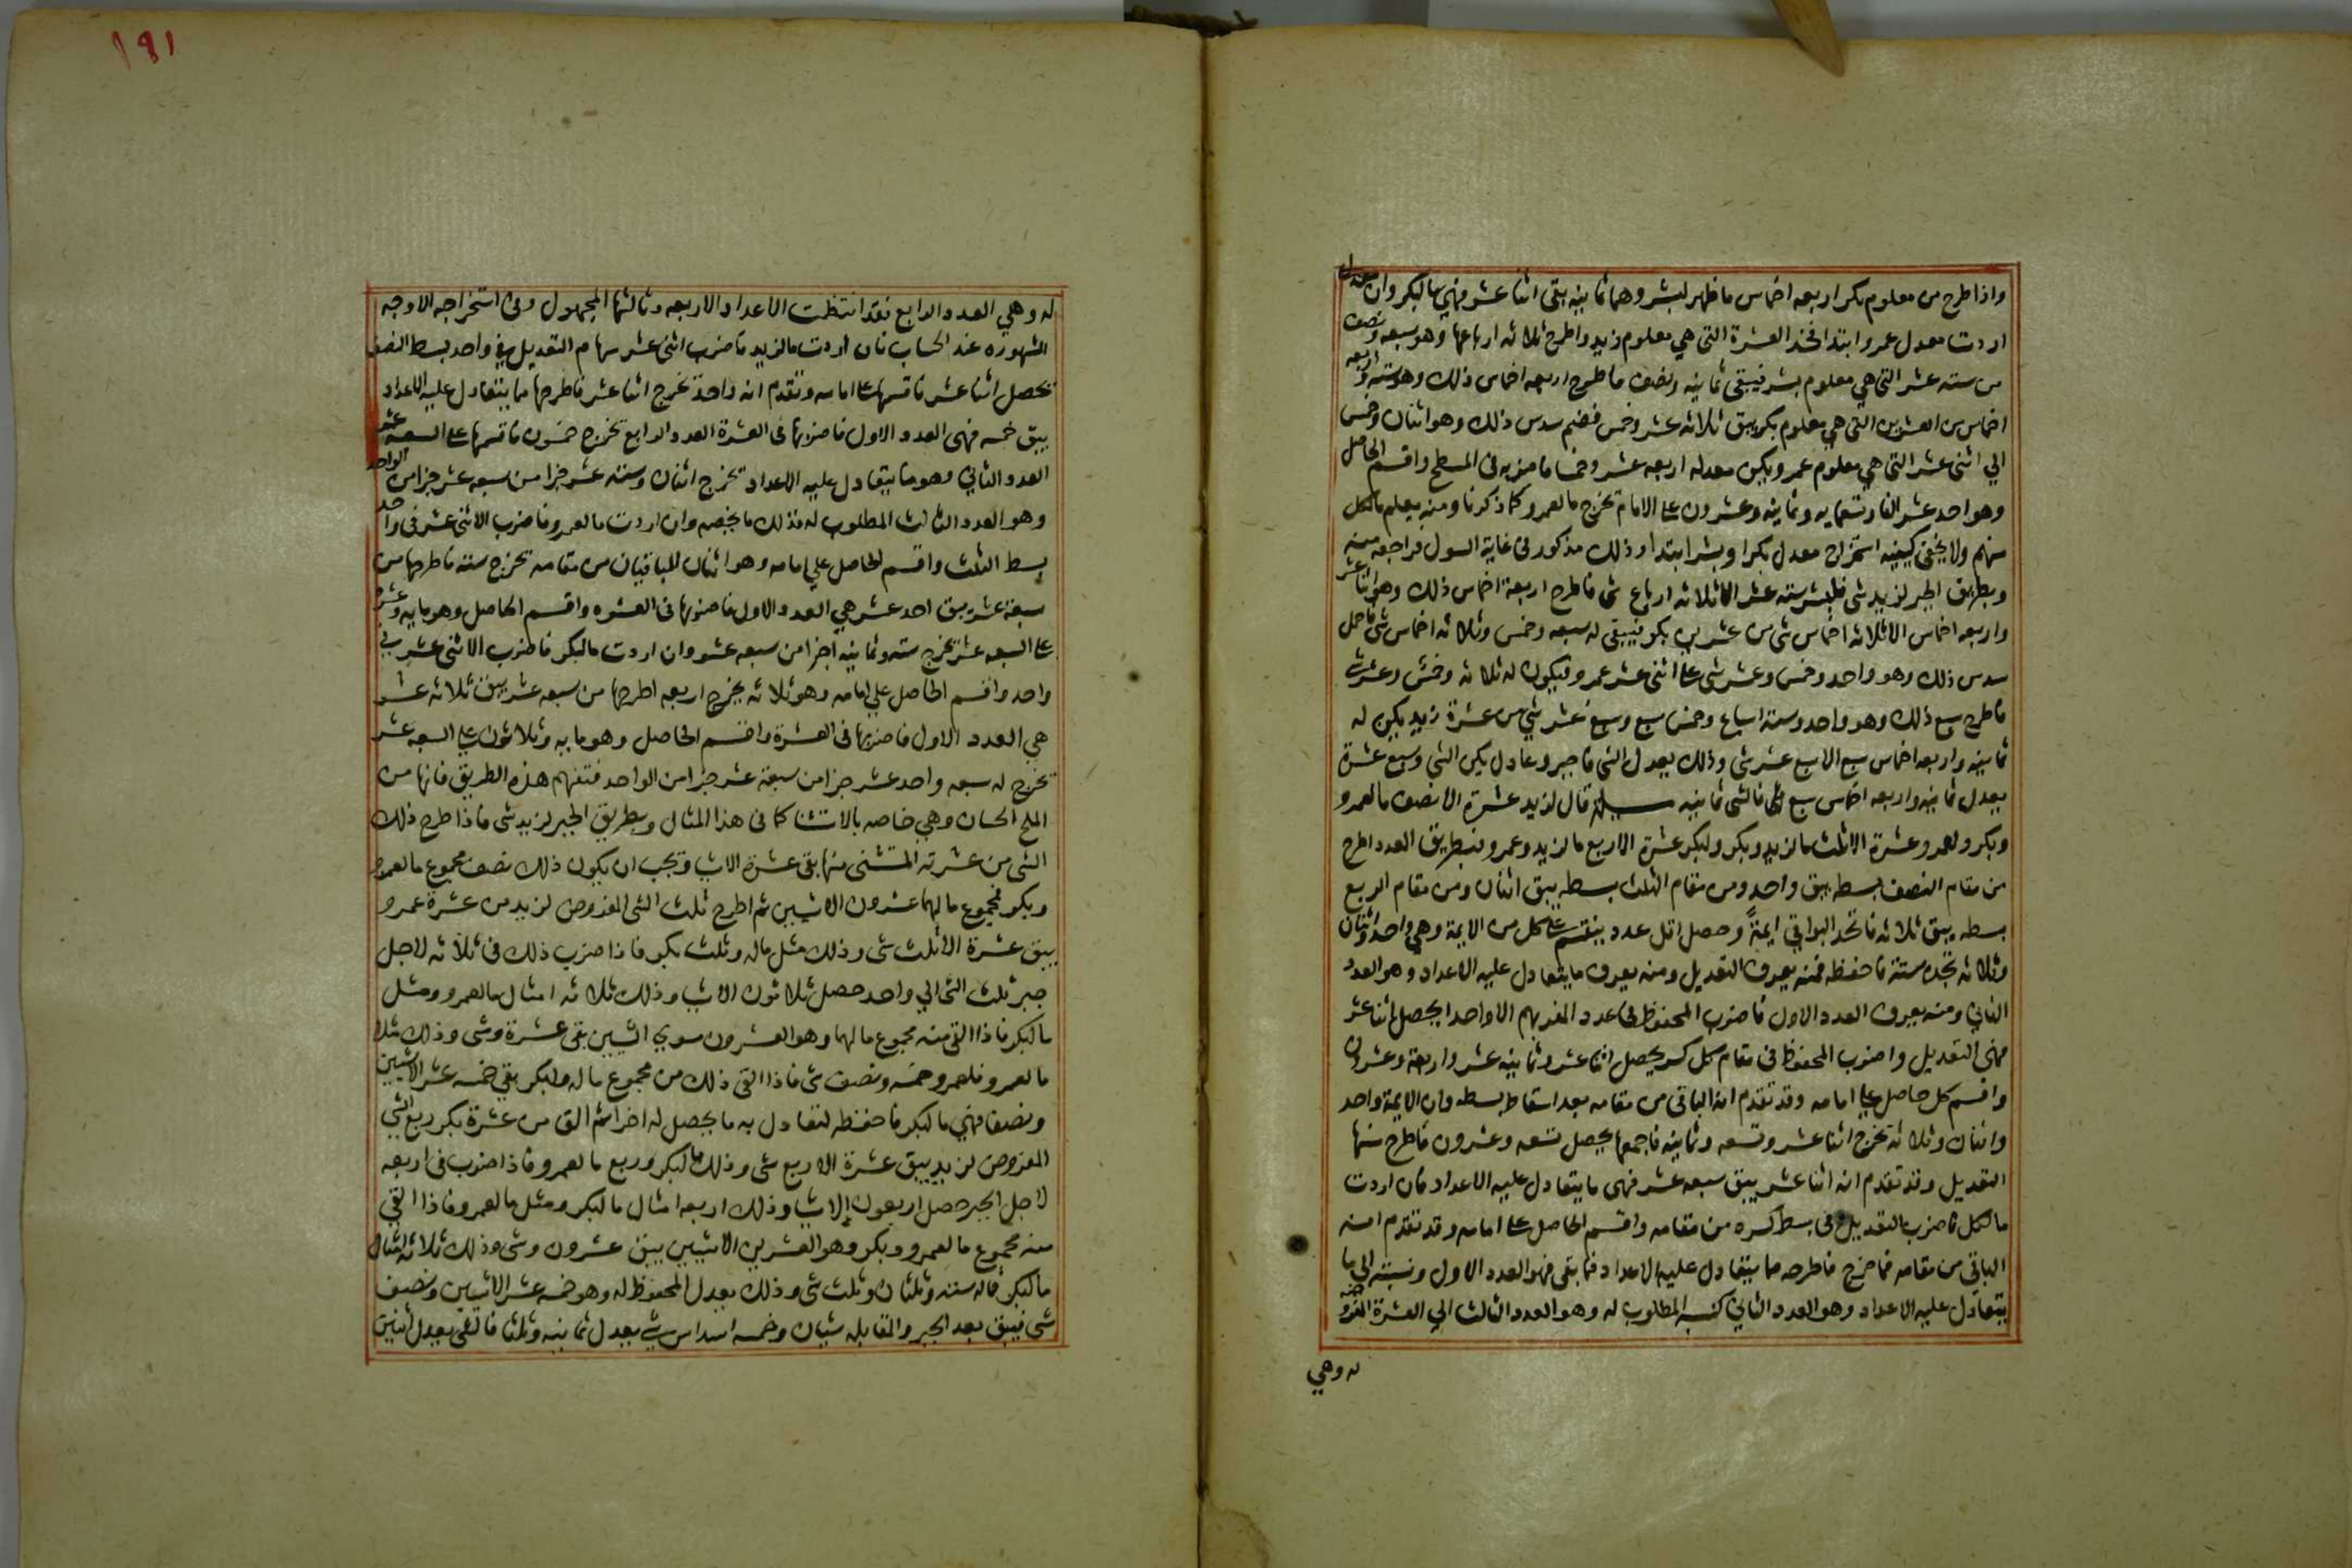 واذا طرح من معلوم بكر اربعه اخماس ما ظهر لبشر وهما ثمانيه بقى اثنا عشر فهي ما لبكر وان
اردت معدل عمرو ابتدا فخذ العشرة التى هي معلوم زيد واطرح ثلاثه ارباعها وهو سبعه ونصف
من سته عشر التى هي معلوم بشر فيبقى ثمانيه ونصف فاطرح اربعه اخماس ذلك وهو سته واربعه
اخماس من العشرين التى هي معلوم بكر يبق ثلاثه عشر وخمس فضم سدس ذلك وهو اثنان وخمس
الي اثنى عشر التى هي معلوم عمرو يكن معدله اربعه عشر وخمسا فاضربه فى المسطح واقسم الحاصل
وهو احد عشر الفا وتسعمايه وثمانيه وعشرون على الامام تخرج ما لعمرو كما ذكرنا ومنه يعلم ما لكل
منهم ولا يخفى كيفيه استخراج معدل بكر او بشر ابتدا وذلك مذكور فى غاية السول فراجعه منه
وبطريق الجبر لزيد شى فلبشر سته عشر الا ثلاثه ارباع شى فاطرح اربعة اخماس ذلك وهو اثنا عشر
واربعه اخماس الا ثلاثه اخماس شى من عشرين بكر فيبقى له سبعه وخمس وثلاثه اخماس شى فاحمل
سدس ذلك وهو واحد وخمس وعشر شى على اثنى عشر عمرو فيكون له ثلاثه وخمس وعشر شى
فاطرح سبع ذلك وهو واحد وسته اسباع وخمس سبع وسبع عشر شي من عشرة زيد يكن له
ثمانيه واربعه اخماس سبع الا سبع عشر شى وذلك يعدل الشى فاجبر وعادل يكن الشى وسبع عشرة
يعدل ثمانيه واربعه اخماس سبع فالشى ثمانيه قال لزيد عشرة الا نصف ما لعمرو
وبكر ولعمرو عشرة الا ثلث ما لزيد وبكر ولبكر عشرة الا ربع ما لزيد وعمرو فبطريق العدد اطرح
من مقام النصف بسطه يبق واحد ومن مقام الثلث بسطه يبق اثنان ومن مقام الربع
بسطه يبق ثلاثه فاتخذ البواقي ايمة وحصل اقل عدد ينقسم على كل من الايمة وهي واحد واثنان
وثلاثه تجده ستة فاحفظه فمنه يعرف التعديل ومنه يعرف ما يتعادل عليه الاعداد وهو العدد
الثاني ومنه يعرف العدد الاول فاضرب المحفوظ فى عدد المفر بهم الا واحدا يحصل اثنا عشر
فهى التعديل واضرب المحفوظ فى مقام كل كسر يحصل اثنا عشر وثمانيه عشر واربعة وعشرون
واقسم كل حاصل على امامه وقد تقدم انه الباقى من مقامه بعد اسقاط بسطه وان الايمة واحد
واثنان وثلاثه تخرج اثنا عشر وتسعه وثمانيه فاجمعها يحصل تسعه وعشرون فاطرح منها
التعديل وقد تقدم انه اثنا عشر يبق سبعه عشر فهى ما يتعادل عليه الاعداد فان اردت
ما لكل فاضرب التعديل فى بسط كسره من مقامه واقسم الحاصل على امامه وقد تقدم انه
الباقي من مقامه فما خرج فاطرحه مما يتعادل عليه الاعداد فما بقى فهو العدد الاول ونسبته الي ما
يتعادل عليه الاعداد وهو العدد الثاني كنسبه المطلوب له وهو العدد الثالث الي العشرة المفروضه
له وهي
١٩١
له وهي العدد الرابع فقد انتظمت الاعداد الاربعه وثالثها المجهول وفى استخراجه الاوجه
المشهوره عند الحساب فان اردت ما لزيد فاضرب اثنى عشر سهام التعديل فى واحد بسط النصف
يحصل اثنا عشر فاقسمها على امامه وتقدم انه واحد تخرج اثنا عشر فاطرحها مما يتعادل عليه الاعداد
يبق خمسه فهى العدد الاول فاضربها فى العشرة العدد الرابع تخرج خمسون فاقسمها على السبعه عشر
العدد الثاني وهو ما يتعادل عليه الاعداد تخرج اثنان وسته عشر جزا من سبعه عشر جزا من الواحد
وهو العدد الثالث المطلوب له فذلك ما يخصه وان اردت ما لعمرو فاضرب الاثنى عشر فى واحد
بسط الثلث واقسم الحاصل علي امامه وهو اثنان الباقيان من مقامه تخرج سته فاطرحها من
سبعة عشر يبق احد عشر هي العدد الاول فاضربها فى العشره واقسم الحاصل وهو مايه وعشره
على السبعه عشر تخرج سته وثمانيه اجزا من سبعه عشر وان اردت ما لبكر فاضرب الاثنى عشر في
واحد واقسم الحاصل علي امامه وهو ثلاثه يخرج اربعه اطرحها من سبعه عشر يبق ثلاثه عشر
هي العدد الاول فاضربها فى العشرة واقسم الحاصل وهو مايه وثلاثون على السبعه عشر
تخرج له سبعه واحد عشر جزا من سبعة عشر جزا من الواحد فتفهم هذه الطريق فانها من
الملح الحسان وهي خاصه بالاستثنا كما فى هذا المثال وبطريق الجبر لزيد شى فاذا طرح ذلك
الشى من عشرته المستثنى منها بقى عشرة الا شيا ويجب ان يكون ذلك نصف مجموع ما لعمرو
وبكر فمجموع ما لهما عشرون الا شيين ثم اطرح ثلث الشى المفروض لزيد من عشرة عمرو
يبق عشرة الا ثلث شى وذلك مثل ماله وثلث بكر فاذا ضرب ذلك فى ثلاثه لاجل
جبر ثلث الشى الي واحد حصل ثلاثون الا شيا وذلك ثلاثه امثال ما لعمرو ومثل
ما لبكر فاذا القى منه مجموع ما لهما وهو العشرون سوي الشيين بقى عشرة وشى وذلك مثلا
ما لعمرو فلعمرو خمسه ونصف شى فاذا القى ذلك من مجموع ما له ولبكر بقي خمسه عشر الا شيين
ونصفا فهي ما لبكر فاحفظه لتعادل به ما يحصل له اخرا ثم الق من عشرة بكر ربع الشى
المفروض لزيد يبق عشرة الا ربع شى وذلك ما لبكر وربع ما لعمرو فاذا ضرب فى اربعه
لاجل الجبر حصل اربعون الا شيا وذلك اربعه امثال ما لبكر ومثل ما لعمرو فاذا القى
منه مجموع ما لعمرو وبكر وهو العشرين الا شيين يبق عشرون وشى وذلك ثلاثه امثال
ما لبكر فاله سته وثلثان وثلث شى وذلك يعدل المحفوظ له وهو خمسه عشر الا شيين ونصف
شى فيبق بعد الجبر والمقابله شيان وخمسه اسداس شى يعدل ثمانيه وثلثا فالشى يعدل اثنين